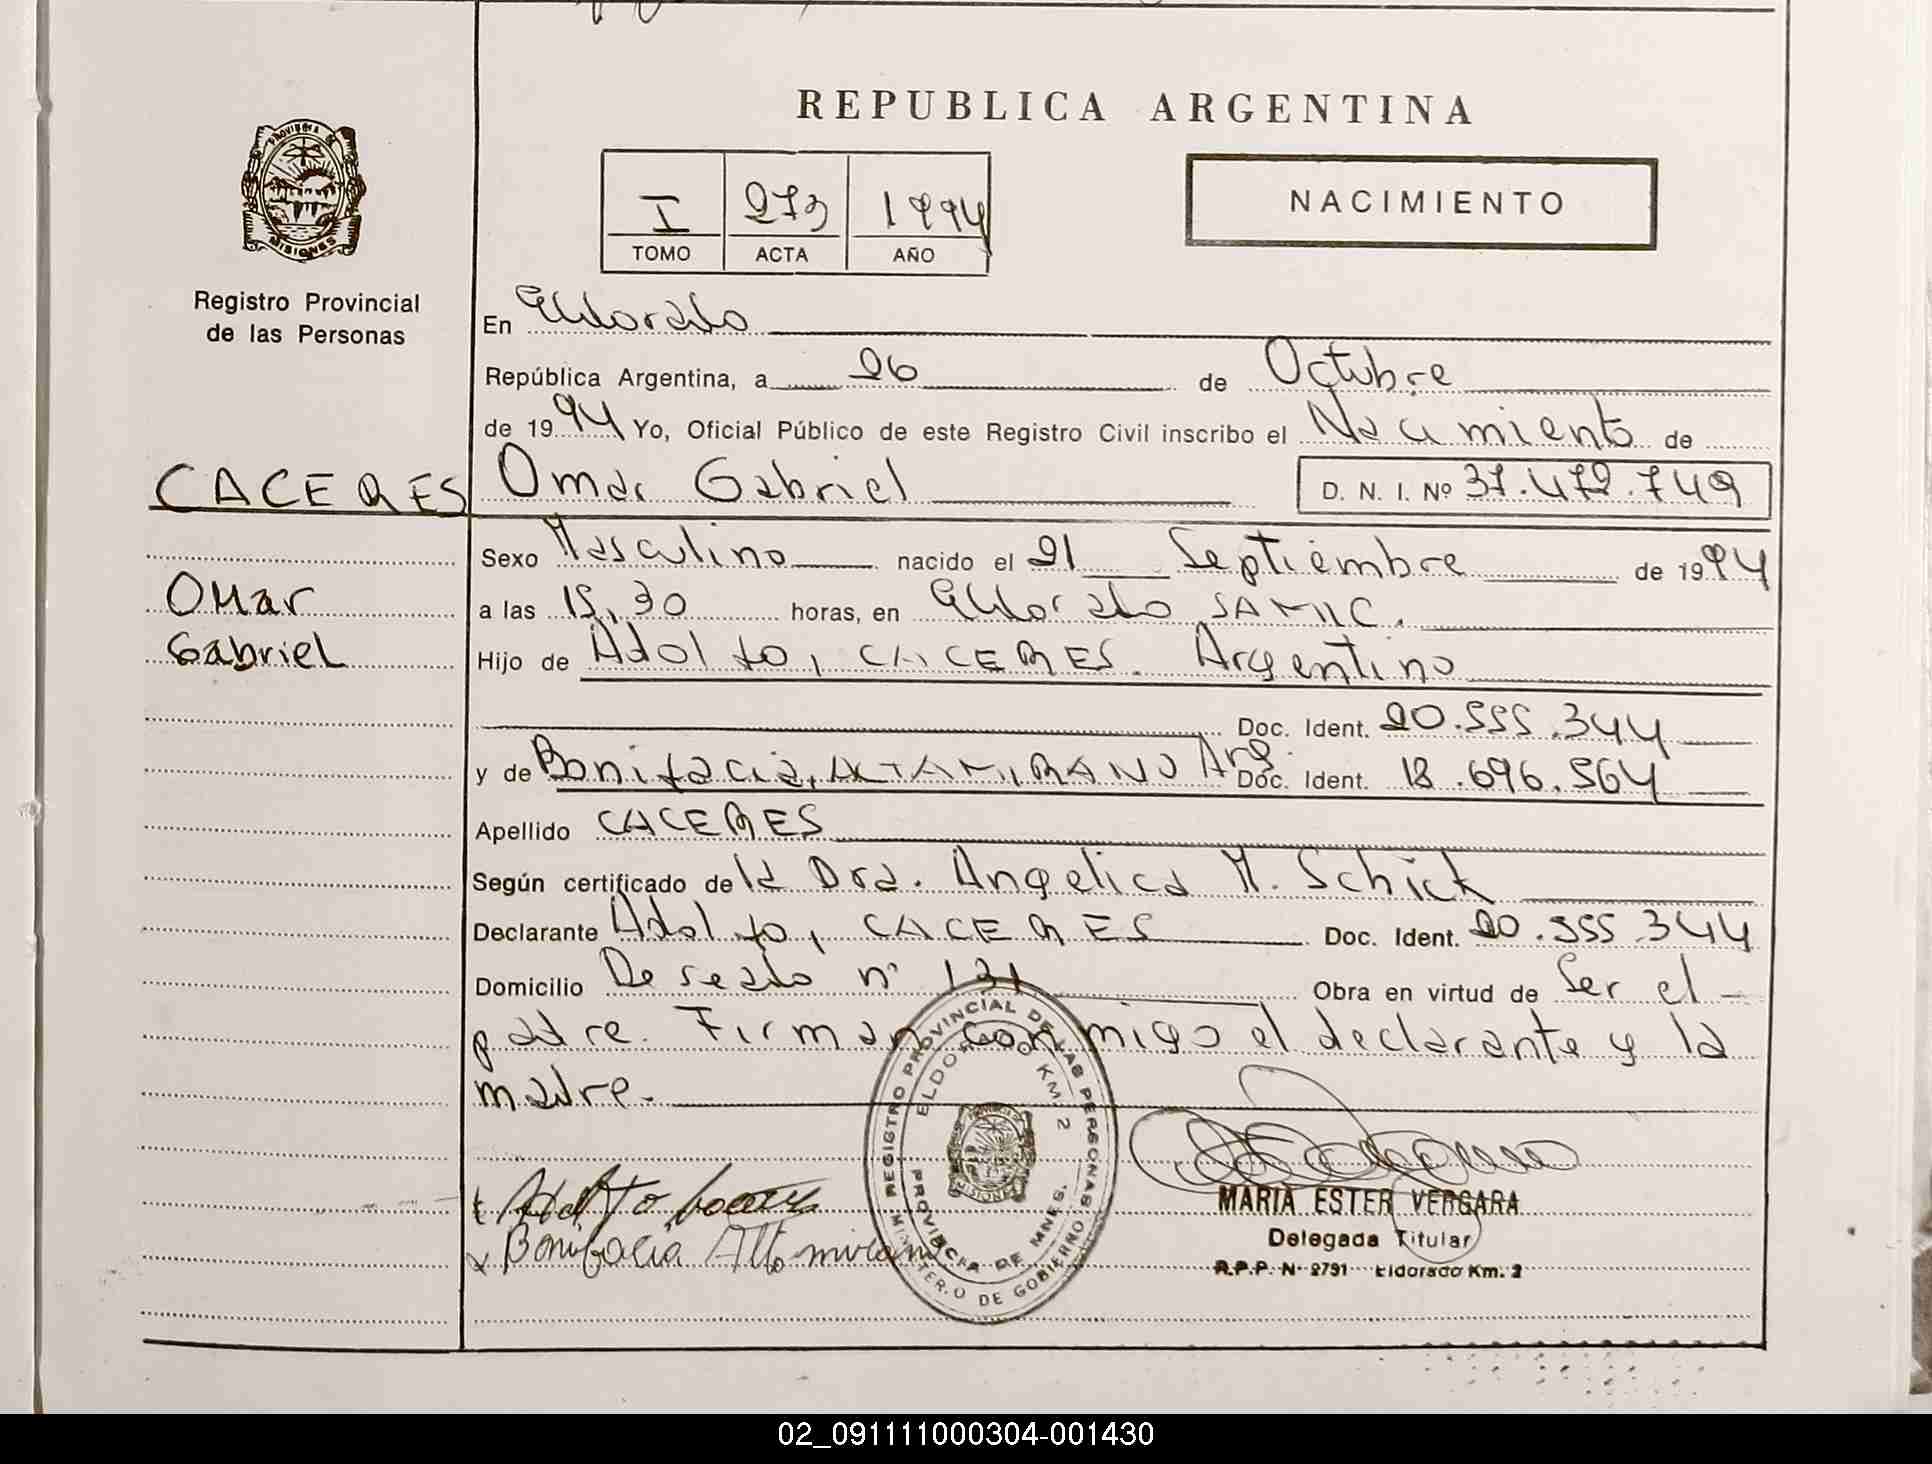 REPUBLICA ARGENTINA
PROVINCIA DE
MISIONES
Registro Provincial
de las Personas
I 273 1994
TOMO ACTA AÑO
NACIMIENTO
En Eldorado
República Argentina, a 26 de Octubre
de 1994 Yo, Oficial Público de este Registro Civil inscribo el Nacimiento de
CACERES Omar Gabriel D. N. I. Nº 37.472.749
Sexo Masculino nacido el 21 Septiembre de 1994
Omar
a las 15,30 horas, en Eldorado SAMIC.
Gabriel
Hijo de Adolfo, CACERES. Argentino
Doc. Ident. 20.555.344
y de Bonifacia, ALTAMIRANO Arg. Doc. Ident. 18.696.564
Apellido CACERES
Según certificado de la Dra. Angelica M. Schick
Declarante Adolfo, CACERES Doc. Ident. 20.555.344
Domicilio Deseado nº 131 Obra en virtud de Ser el
padre. Firman conmigo el declarante y la
madre.
REGISTRO PROVINCIAL DE LAS PERSONAS
ELDORADO KM 2
MISIONES
PROVINCIA DE MNES.
MINISTERIO DE GOBIERNO
Adolfo
Bonifacia Altamirano
MARIA ESTER VERGARA
Delegada Titular
R.P.P. Nº 2791 Eldorado Km. 2
02_091111000304-001430